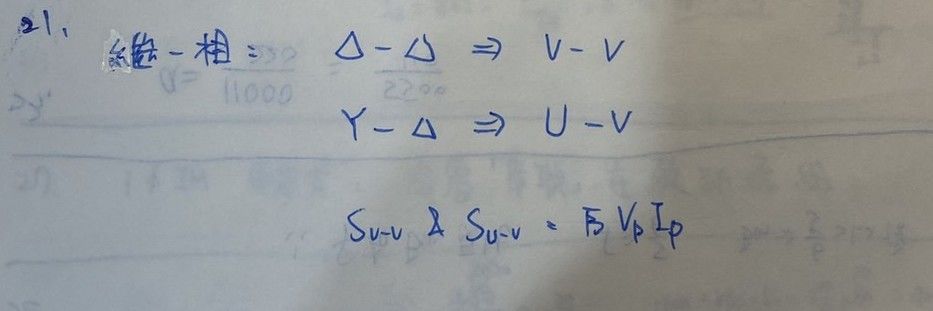 21.
缺一相： Δ－Δ ⇒ V－V
Y－Δ ⇒ U－V
S_{V-V} & S_{U-V} = √3 V_P I_P